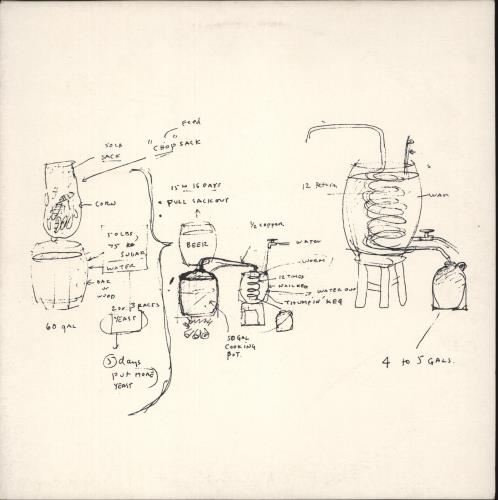 FEED
"CHOP SACK"
50 LB
SACK
CORN
50 LBS,
75 
SUGAR
WATER
BAR
OR
WOOD
60 gal
2 OR 3 CAKES
YEAST
5 days
put MORE
YEAST
15 to 16 DAYS
PULL SACK OUT
BEER
1/2 COPPER
WATER
WORM
12 TURNS
NAIL KEG
WATER OUT
THUMPIN' KEG
50 GAL
COOKING
POT.
12 Return
4 to 5 GALS.